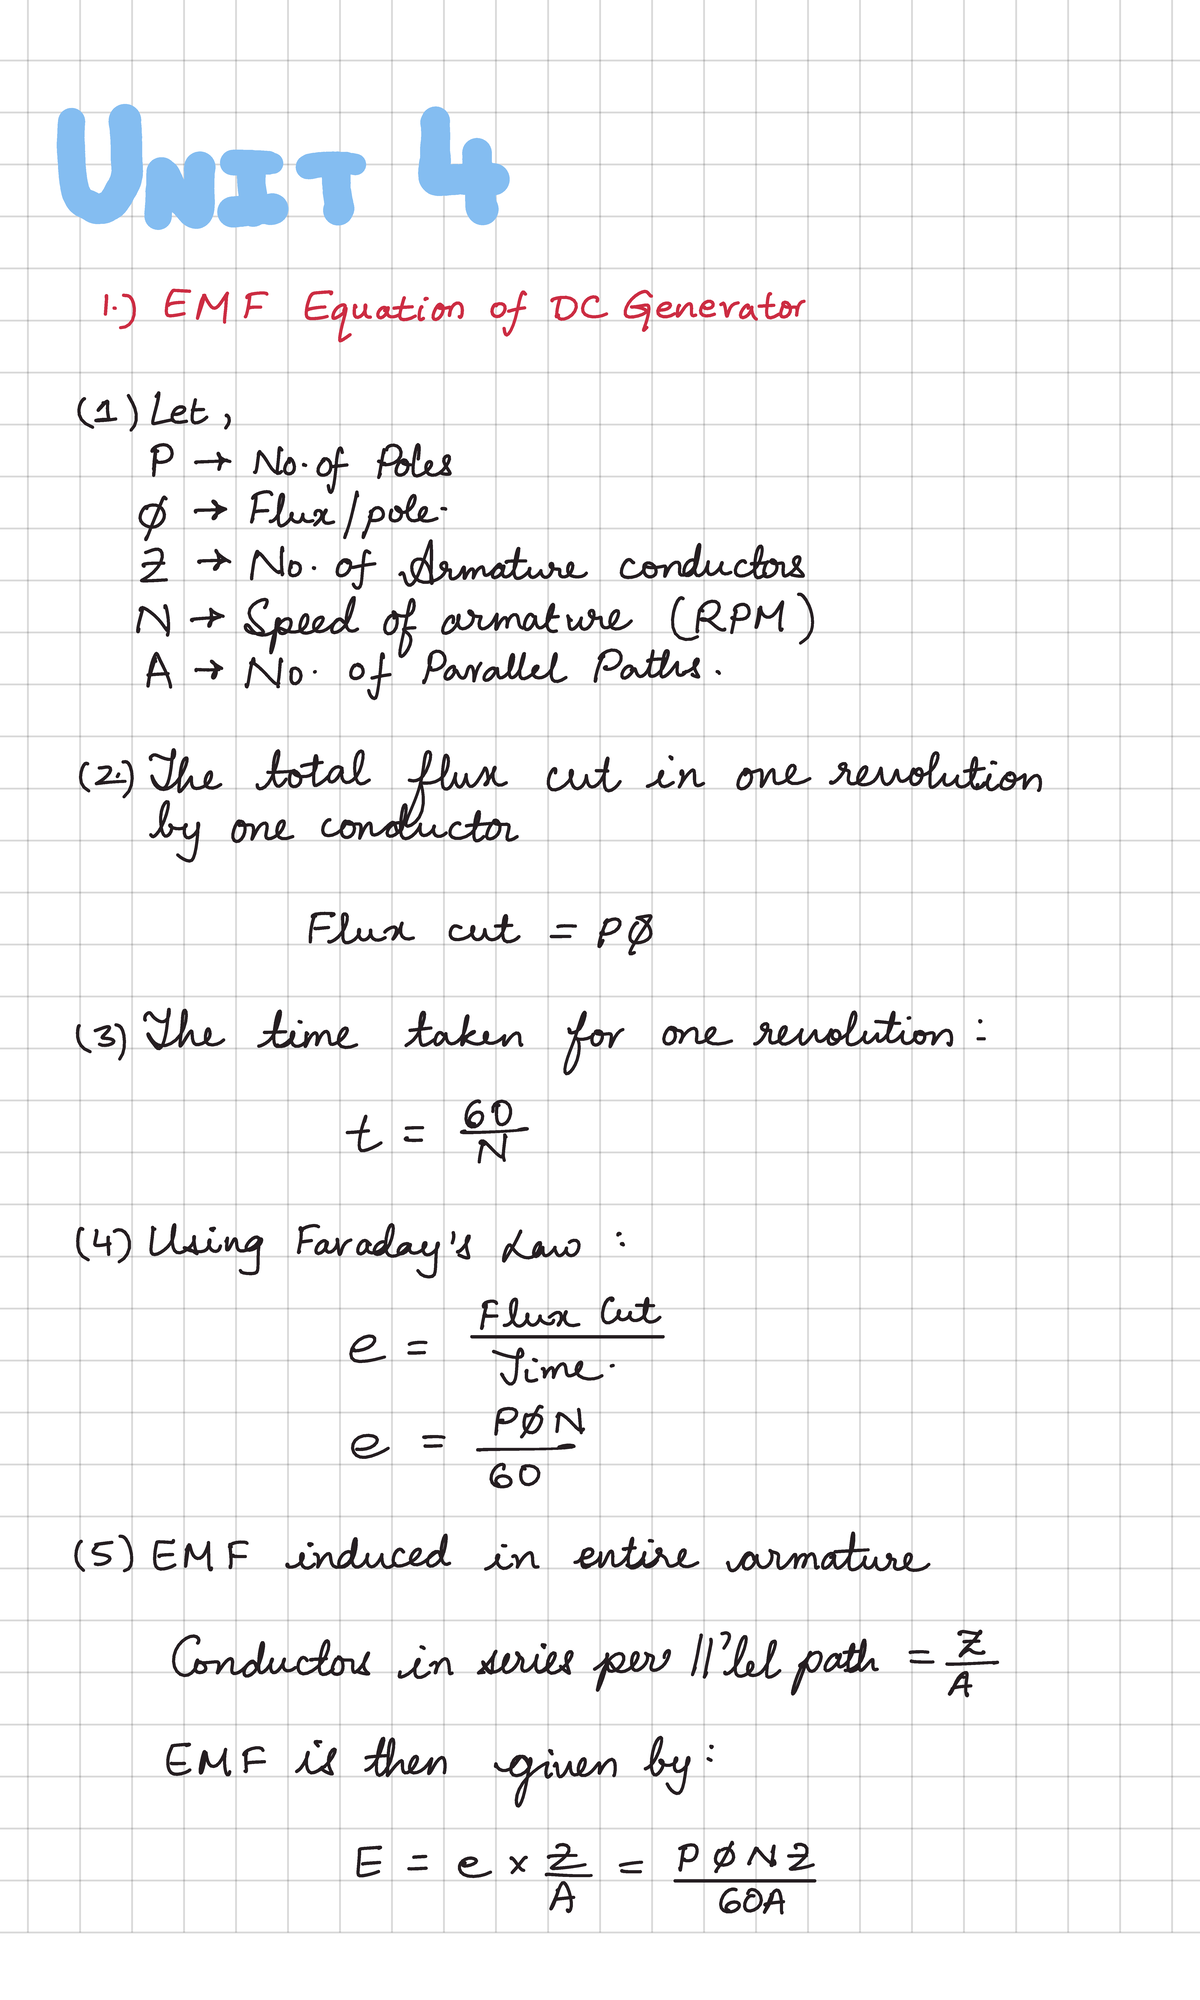 UNIT 4
1.) EMF Equation of DC Generator
(1) Let,
P → No. of Poles
ϕ → Flux/pole.
Z → No. of Armature conductors
N → Speed of armature (RPM)
A → No. of Parallel Paths.
(2.) The total flux cut in one revolution
by one conductor
Flux cut = Pϕ
(3) The time taken for one revolution :
t = 60/N
(4) Using Faraday's Law :
e = Flux Cut/Time.
e = PϕN/60
(5) EMF induced in entire armature
Conductors in series per ||'lel path = Z/A
EMF is then given by:
E = e × Z/A = PϕNZ/60A